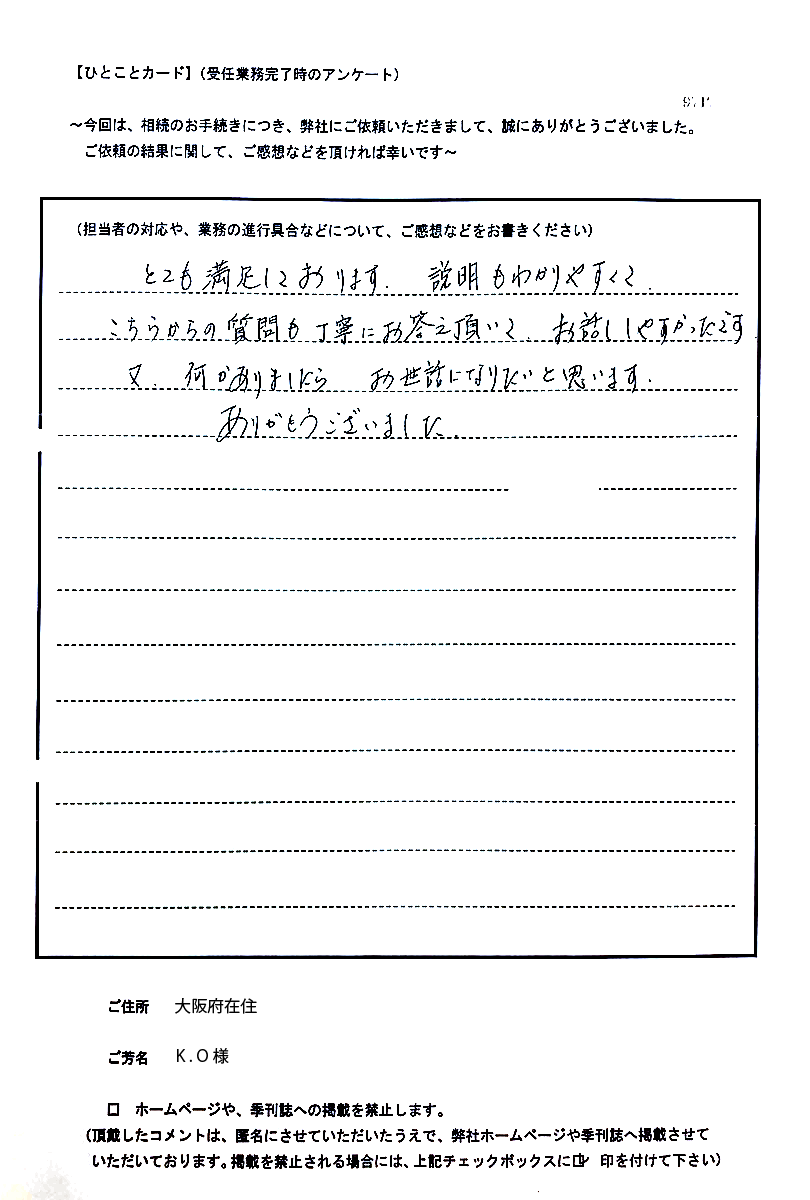 【ひとことカード】(受任業務完了時のアンケート)
~今回は、相続のお手続きにつき、弊社にご依頼いただきまして、誠にありがとうございました。
ご依頼の結果に関して、ご感想などを頂ければ幸いです~
(担当者の対応や、業務の進行具合などについて、ご感想などをお書きください)
とても満足しております. 説明もわかりやすくて.
こちらからの質問も丁寧にお答え頂いて、お話ししやすかったです
又、何かありましたら お世話になりたいと思います.
ありがとうございました.
ご住所 大阪府在住
ご芳名 K.O様
□ ホームページや、季刊誌への掲載を禁止します。
(頂戴したコメントは、匿名にさせていただいたうえで、弊社ホームページや季刊誌へ掲載させて
いただいております。掲載を禁止される場合には、上記チェックボックスに☑ 印を付けて下さい)